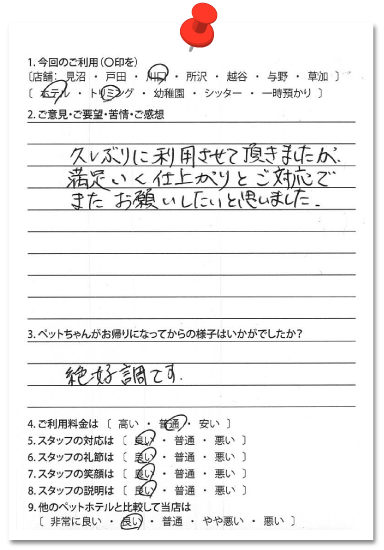 1. 今回のご利用(○印を)
〔店舗: 見沼 ・ 戸田 ・ 川口 ・ 所沢 ・ 越谷 ・ 与野 ・ 草加 〕
〔 ホテル ・ トリミング ・ 幼稚園 ・ シッター ・ 一時預かり 〕
2. ご意見・ご要望・苦情・ご感想
久しぶりに利用させて頂きましたが、
満足いく仕上がりとご対応で
またお願いしたいと思いました。
3. ペットちゃんがお帰りになってからの様子はいかがでしたか?
絶好調です。
4. ご利用料金は 〔 高い ・ 普通 ・ 安い 〕
5. スタッフの対応は 〔 良い ・ 普通 ・ 悪い 〕
6. スタッフの礼節は 〔 良い ・ 普通 ・ 悪い 〕
7. スタッフの笑顔は 〔 良い ・ 普通 ・ 悪い 〕
8. スタッフの説明は 〔 良い ・ 普通 ・ 悪い 〕
9. 他のペットホテルと比較して当店は
〔 非常に良い ・ 良い ・ 普通 ・ やや悪い ・ 悪い 〕